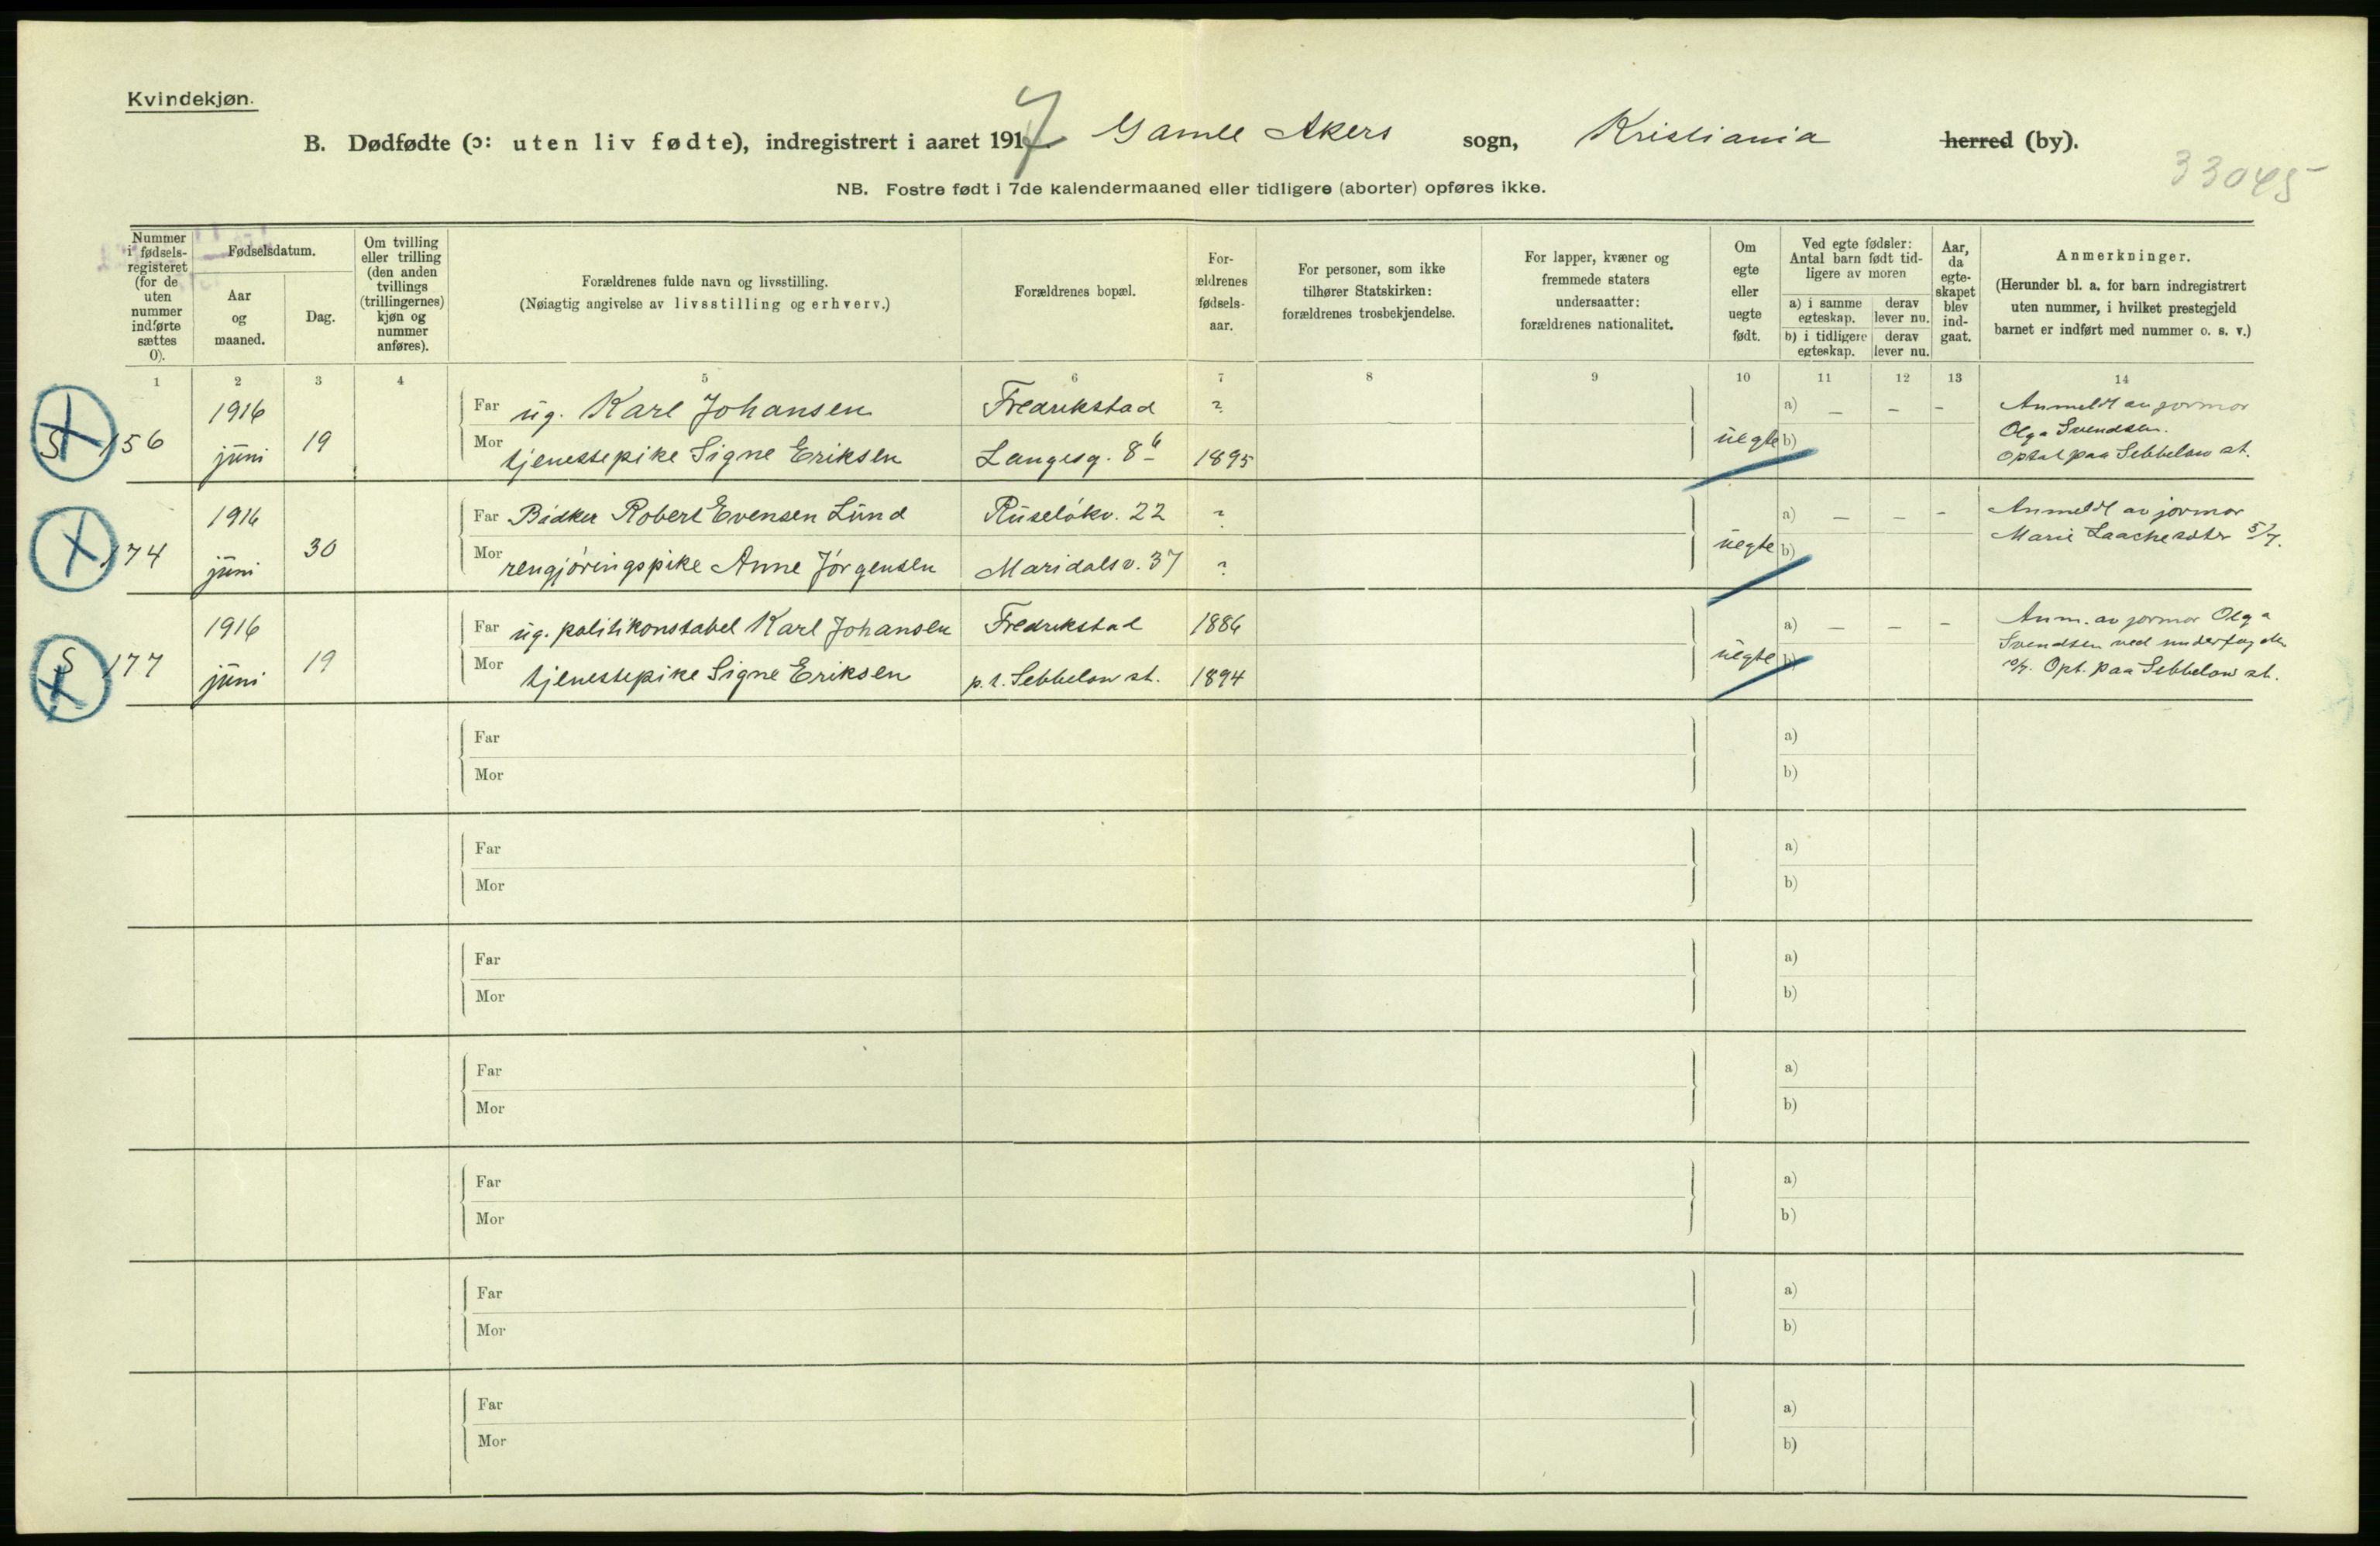 Kvindekjøn.
B. Dødfødte (ɔ: uten liv fødte), indregistrert i aaret 1917 Gamle Akers sogn, Kristiania herred (by).
33045
NB. Fostre født i 7de kalendermaaned eller tidligere (aborter) opføres ikke.
Nummer i fødsels-registeret (for de uten nummer indførte sættes 0).
Fødselsdatum.
Aar og maaned.
Dag.
Om tvilling eller trilling (den anden tvillings (trillingernes) kjøn og nummer anføres).
Forældrenes fulde navn og livsstilling.
(Nøiagtig angivelse av livsstilling og erhverv.)
Forældrenes bopæl.
For-ældrenes fødsels-aar.
For personer, som ikke tilhører Statskirken: forældrenes trosbekjendelse.
For lapper, kvæner og fremmede staters undersaatter: forældrenes nationalitet.
Om egte eller uegte født.
Ved egte fødsler: Antal barn født tid-ligere av moren
a) i samme egteskap.
derav lever nu.
b) i tidligere egteskap.
derav lever nu.
Aar, da egte-skapet blev ind-gaat.
Anmerkninger.
(Herunder bl. a. for barn indregistrert uten nummer, i hvilket prestegjeld barnet er indført med nummer o. s. v.)
1 2 3 4 5 6 7 8 9 10 11 12 13 14
1916 Far ug. Karl Johansen Fredrikstad ? a) – – – Anmeldt av jormor
S 156 juni 19 Mor tjenestepike Signe Eriksen Langesg. 8 6 1895 uegte b) Olga Svendsen.
Optat paa Sebbelow st.
1916 Far Bødker Robert Evensen Lund Ruseløkv. 22 ? a) – – – Anmeldt av jormor
174 juni 30 Mor rengjøringspike Anne Jørgensen Maridalsv. 37 ? uegte b) Marie Laachesæter 5/7.
1916 Far ug. politikonstabel Karl Johansen Fredrikstad 1886 a) – – – Anm. av jormor Olga
S 177 juni 19 Mor tjenestepike Signe Eriksen p.t. Sebbelow st. 1894 uegte b) Svendsen ved
Opt. paa Sebbelow st.
Far a)
Mor b)
Far a)
Mor b)
Far a)
Mor b)
Far a)
Mor b)
Far a)
Mor b)
Far a)
Mor b)
Far a)
Mor b)